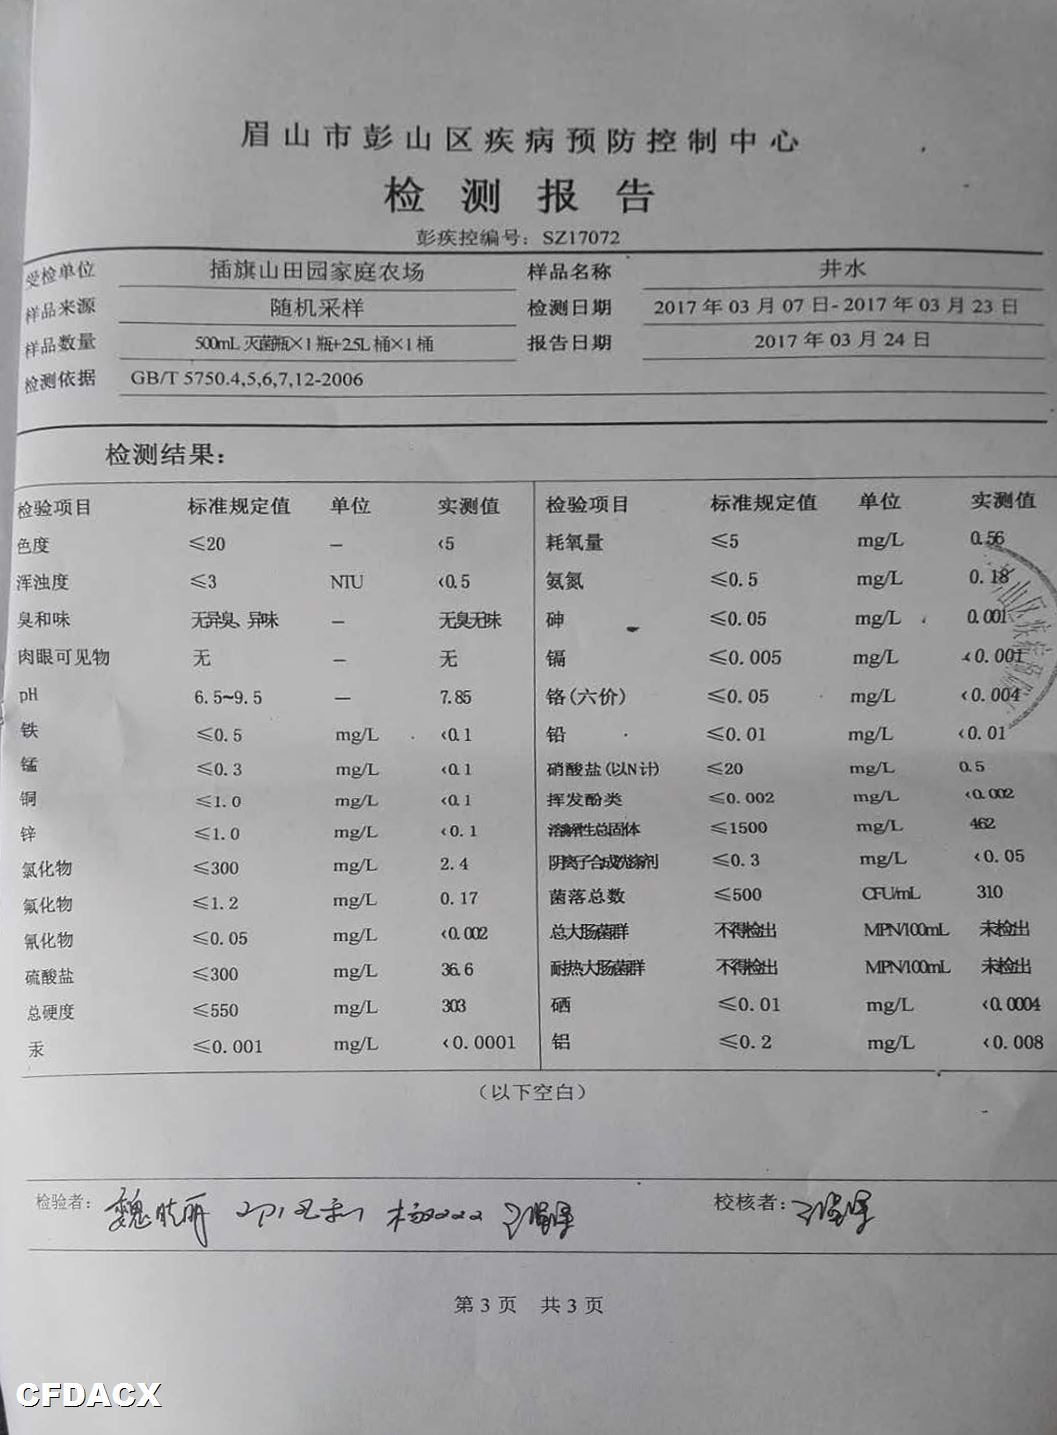 眉山市彭山区疾病预防控制中心
检测报告
彭疾控编号：SZ17072
受检单位 插旗山田园家庭农场 样品名称 井水
样品来源 随机采样 检测日期 2017年03月07日-2017年03月23日
样品数量 500mL灭菌瓶×1瓶+2.5L桶×1桶 报告日期 2017年03月24日
检测依据 GB/T 5750.4,5,6,7,12-2006
检测结果：
检验项目 标准规定值 单位 实测值 检验项目 标准规定值 单位 实测值
色度 ≤20 — <5 耗氧量 ≤5 mg/L 0.56
浑浊度 ≤3 NTU <0.5 氨氮 ≤0.5 mg/L 0.18
臭和味 无异臭、异味 — 无臭无味 砷 ≤0.05 mg/L 0.001
肉眼可见物 无 — 无 镉 ≤0.005 mg/L <0.001
pH 6.5~9.5 — 7.85 铬(六价) ≤0.05 mg/L <0.004
铁 ≤0.5 mg/L <0.1 铅 ≤0.01 mg/L <0.01
锰 ≤0.3 mg/L <0.1 硝酸盐(以N计) ≤20 mg/L 0.5
铜 ≤1.0 mg/L <0.1 挥发酚类 ≤0.002 mg/L <0.002
锌 ≤1.0 mg/L <0.1 溶解性总固体 ≤1500 mg/L 462
氯化物 ≤300 mg/L 2.4 阴离子合成洗涤剂 ≤0.3 mg/L <0.05
氟化物 ≤1.2 mg/L 0.17 菌落总数 ≤500 CFU/mL 310
氰化物 ≤0.05 mg/L <0.002 总大肠菌群 不得检出 MPN/100mL 未检出
硫酸盐 ≤300 mg/L 36.6 耐热大肠菌群 不得检出 MPN/100mL 未检出
总硬度 ≤550 mg/L 303 硒 ≤0.01 mg/L <0.0004
汞 ≤0.001 mg/L <0.0001 铝 ≤0.2 mg/L <0.008
（以下空白）
检验者： 魏晓丽 校核者：
第3页 共3页
CFDACX